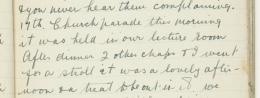 & you never hear them complaining.
17th. Church parade this morning
it was held in our lecture room
After dinner 2 other chaps & I went
for a stroll it was a lovely after-
noon & a treat to be out in it, we